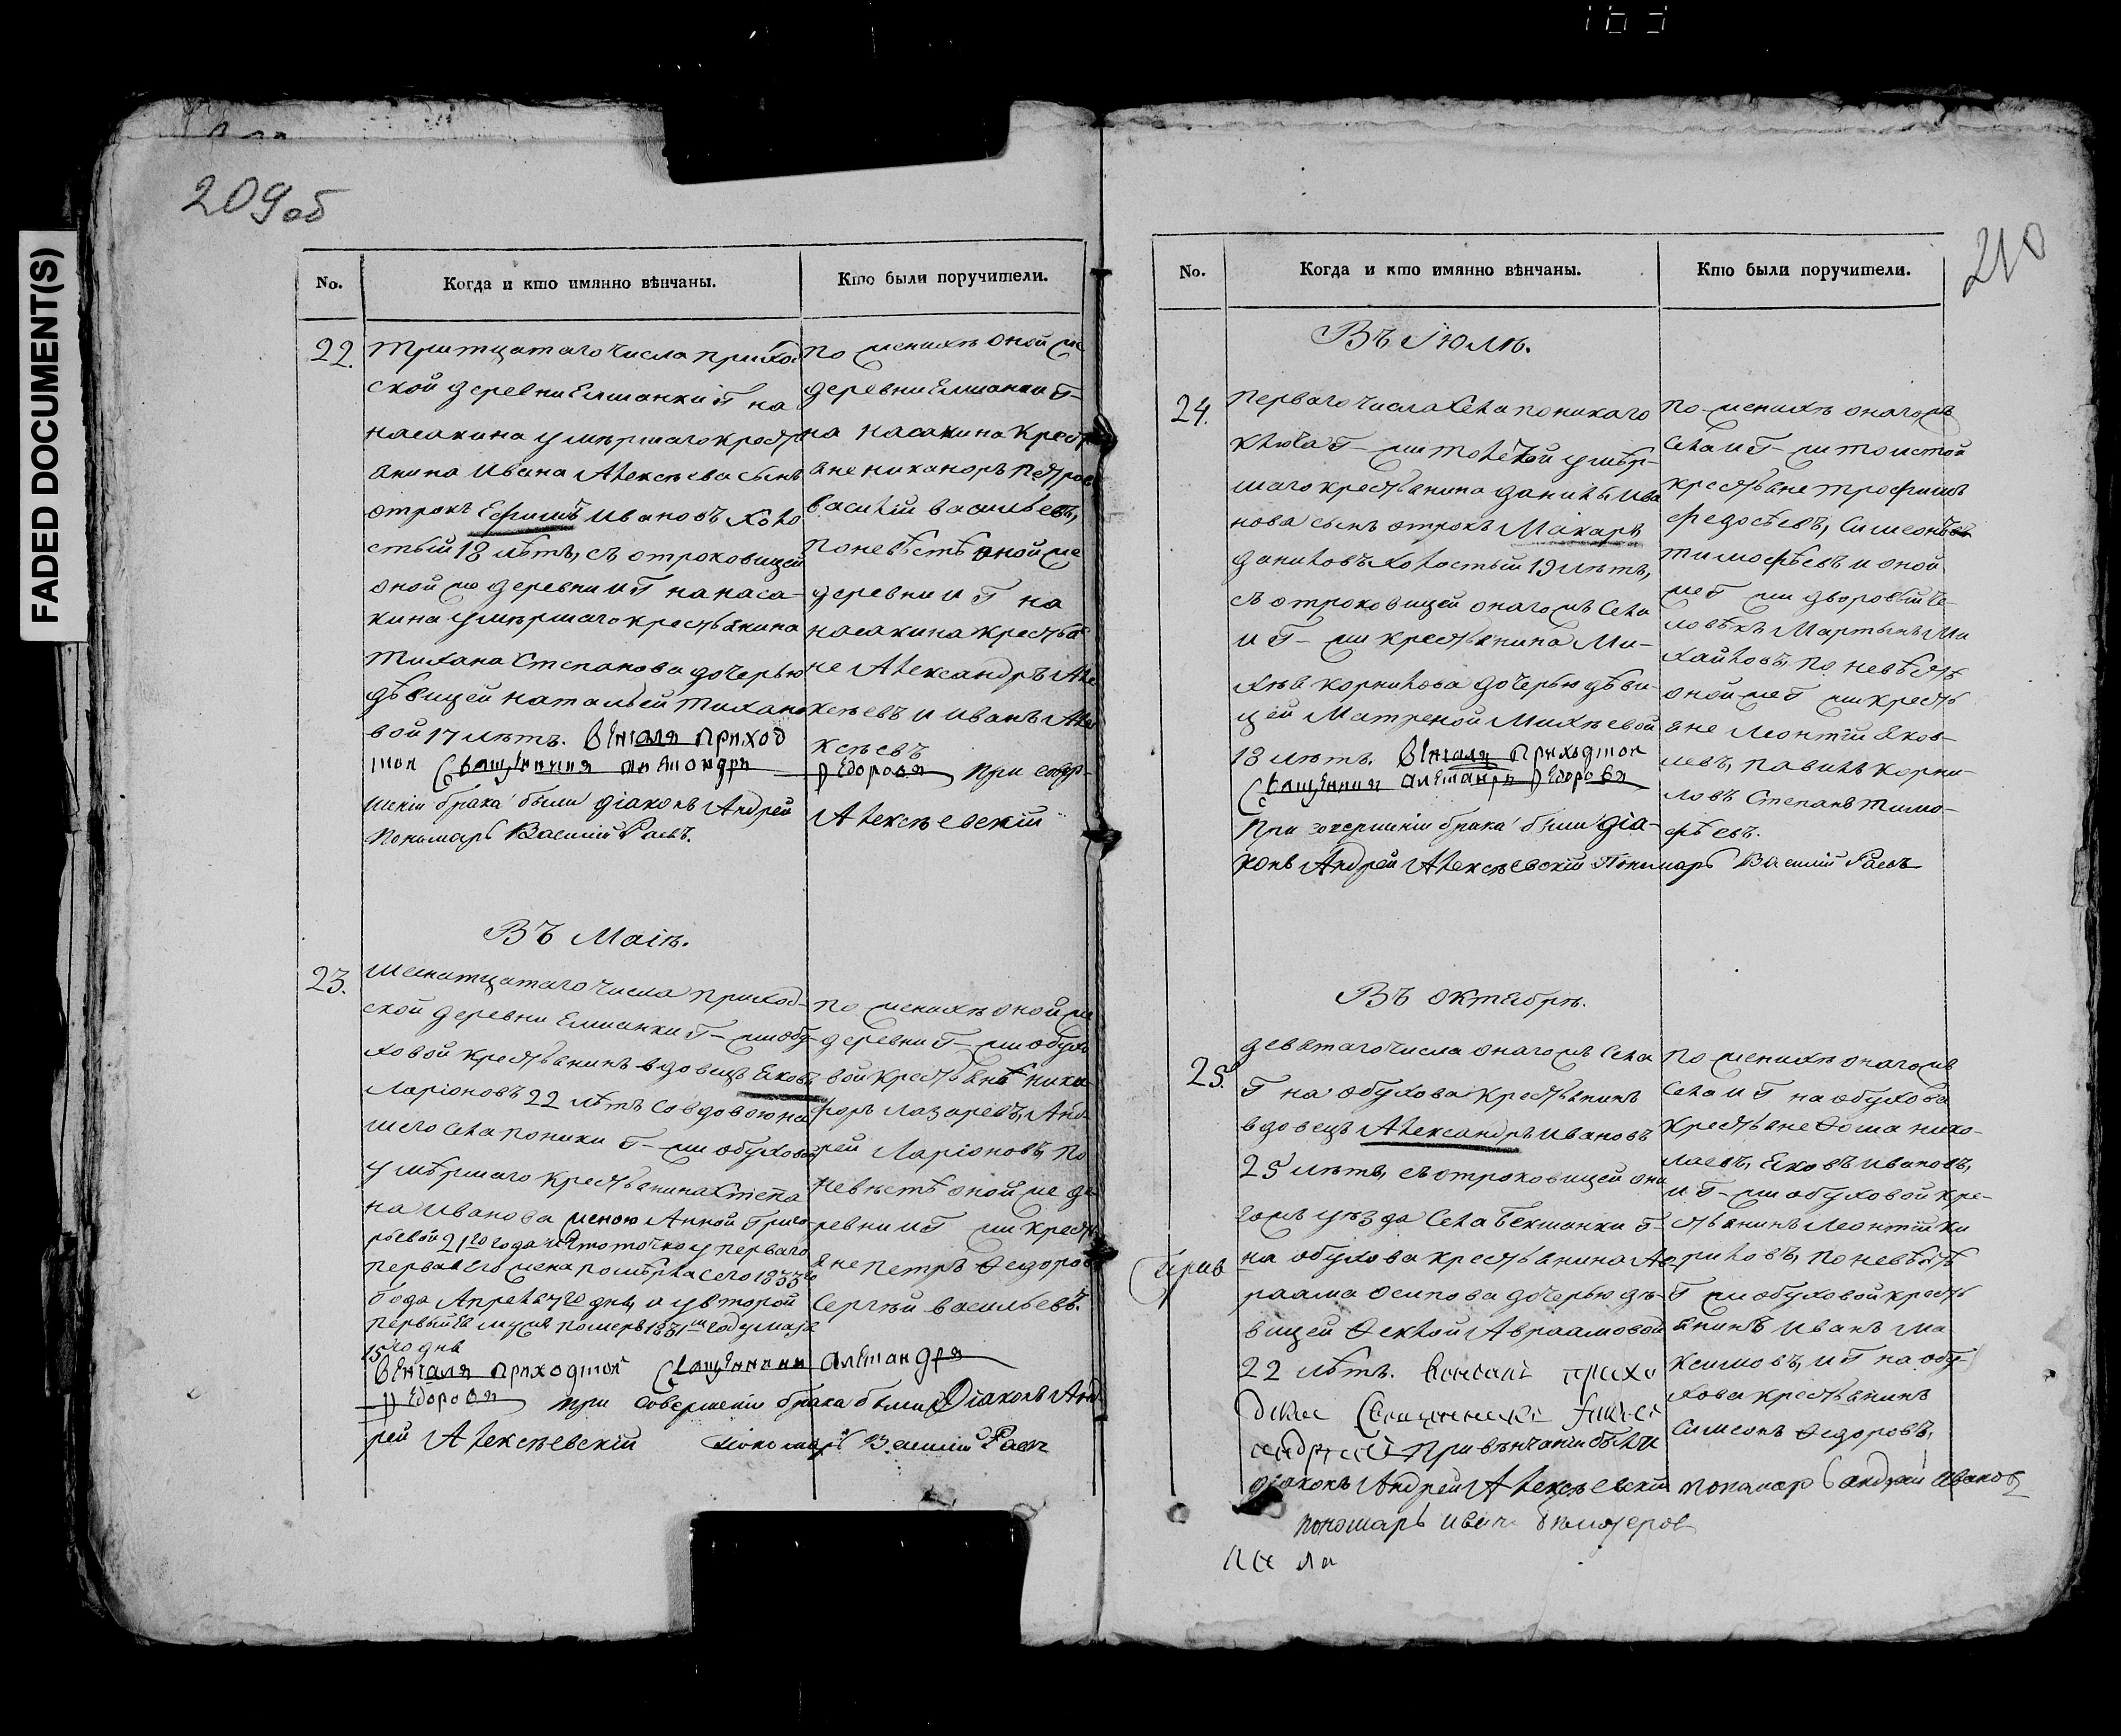 FADED DOCUMENT(S)
209об
No.
Когда и кто имянно вѣнчаны.
Кто были поручители.
22.
тритцатаго числа приход
ской деревни Елшанки Г на
насакина умѣршаго кресть
янина Ивана Алексѣева сынъ
отрокъ Ефимъ Ивановъ холо
стый 18 лѣтъ, съ отроковицей
оной же деревни и Г на наса-
кина умѣршаго крестьянина
Тихана Степанова дочерью
дѣвицей натальей Тихано
вой 17 лѣтъ. Венчалъ приход
Священникъ
Федоровъ При совер-
шеніи брака были діаконъ Андрей
Алексѣевскій
Пономарь Василій Раевъ.
по женихѣ оной же
деревни Елшанки Г-
на насакина крестья
не никаноръ Петровъ
василій васильевъ,
по невѣстѣ оной же
деревни и Г на
насакина крестья
не Александръ Але
ксѣевъ и иванъ Але
ксѣевъ
Въ Маіѣ.
23.
шеснатцатаго числа приход-
ской деревни Елшанки Г-жи обу-
ховой крестьянинъ вдовецъ Яковъ
Ларіоновъ 22 лѣтъ со вдовою на
шего села поники Г-жи обуховой
умѣршаго крестьянина Степа
на Иванова женою Анной Григо
рьевой 21го года
первая его жена помѣрла сего 1833го
года Апреля 7го дня, и у второй
первый ея мужъ померъ 1831м году мая
15го дня
Венчалъ приходской Священникъ Александръ
Федоровъ при совершеніи брака были Діаконъ Анд-
рей Алексѣевскій Пономарь Василій Раевъ
по женихѣ оной же
деревни Г-жи обухо
вой крестьянѣ ники-
форъ лазаревъ, Анд-
рей Ларіоновъ, по
невѣстѣ оной же де
ревни и Г жи кресть
яне петръ Ѳедоровъ
Сергѣй васильевъ.
210
No.
Когда и кто имянно вѣнчаны.
Кто были поручители.
Въ Іюлѣ.
24.
перваго числа села поникаго
ключа Г-жи толстой умѣр-
шаго крестьянина данилы Ива
нова сынъ отрокъ Макаръ
даниловъ холостый 19 лѣтъ,
съ отроковицей онагожъ села
и Г-жи крестьянина Ми-
хѣя корнилова дочерью дѣви-
цей Матреной Михѣевой
18 лѣтъ. Венчалъ Приходской
Священникъ Александръ Федоровъ
При совершеніи брака были діа-
конъ Андрей Алексѣевскій Пономарь Василій Раевъ
по женихѣ онагожъ
села и Г-жи толстой
крестьяне трофимъ
федосѣевъ, Симеонъ
тимофѣевъ и оной
же Г жи дворовый че-
ловѣкъ Мартынъ Ми
хайловъ, по невѣстѣ
оной же Г жи кресть
яне леонтій яков-
левъ, павилъ корни-
ловъ Степанъ тимо-
фѣевъ.
Въ Октябрѣ.
25.
девятаго числа онагожъ села
Г на обухова крестьянинъ
вдовецъ Александръ Ивановъ
25 лѣтъ, съ отроковицей она
гожъ уѣзда села Бекшанки Г-
на обухова крестьянина Ав-
раама осипова дочерью дѣ-
вицей Ѳеклой Авраамовой
22 лѣтъ. Венчалъ прихо
При вѣнчаніи были
діаконъ Андрей Алексѣевскій пономарь Андрей Иванов
пономарь Иванъ
по женихѣ онагожъ
села и Г на обухова
крестьяне Ѳома нико-
лаевъ, Яковъ ивановъ,
и Г-жи обуховой кре-
стьянинъ леонтій ки
риловъ, по невѣстѣ
Г жи обуховой кресть
янинъ иванъ ма
ксимовъ, и Г на обу-
хова крестьянинъ
симеонъ Ѳедоровъ,